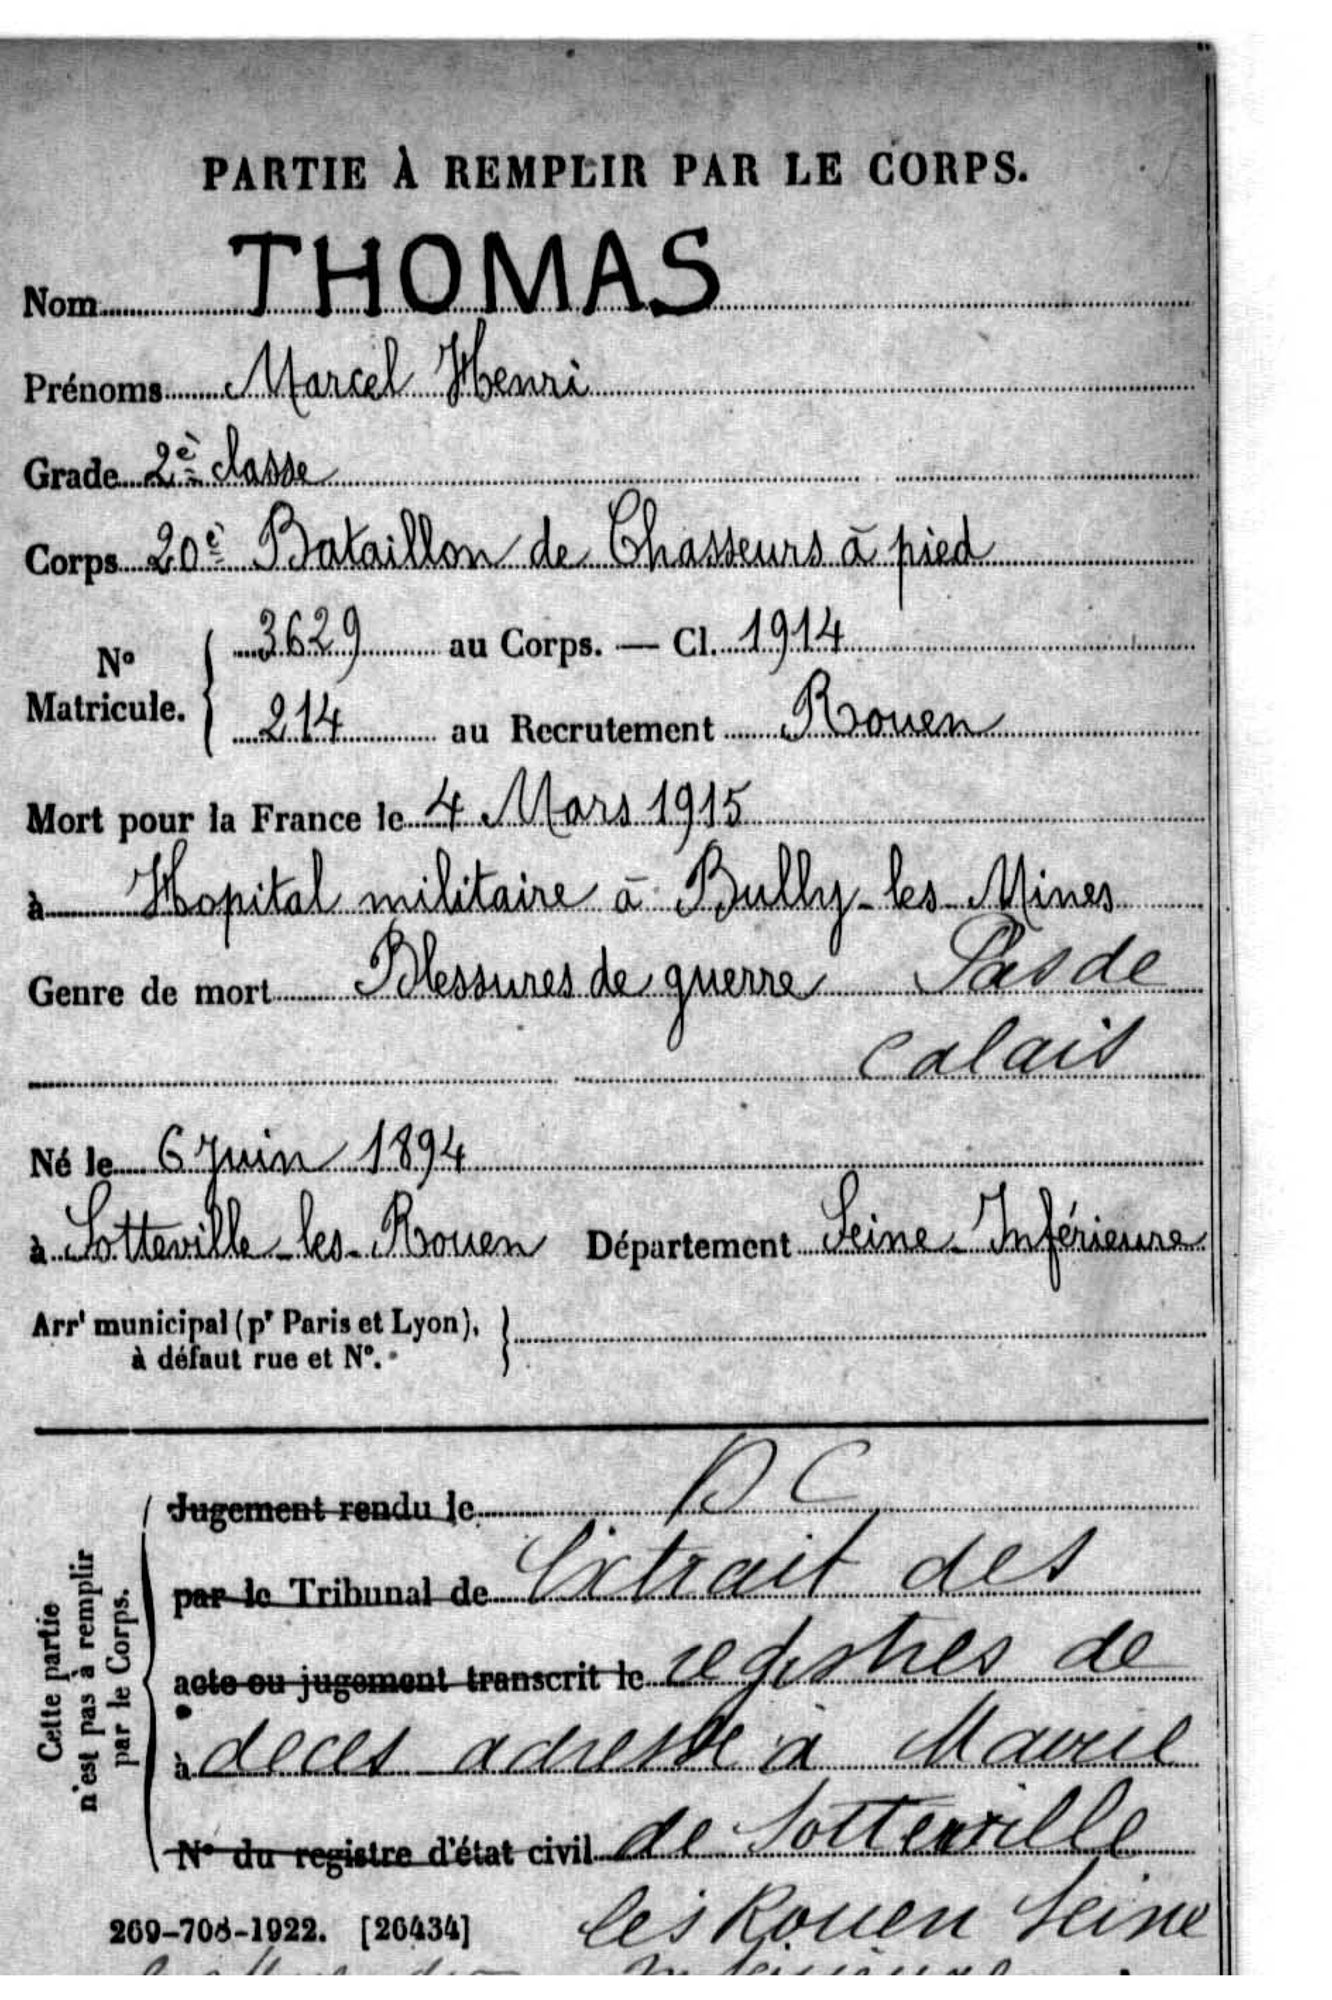 PARTIE À REMPLIR PAR LE CORPS.
Nom THOMAS
Prénoms Marcel Henri
Grade 2è classe
Corps 20è Bataillon de Chasseurs à pied
No Matricule. { 3629 au Corps. — Cl. 1914
214 au Recrutement Rouen
Mort pour la France le 4 Mars 1915
à Hopital militaire à Bully-les-Mines
Genre de mort Blessures de guerre Pas de
Calais
Né le 6 Juin 1894
à Sotteville-les-Rouen Département Seine-Inférieure
Arrt municipal (pr Paris et Lyon), }
à défaut rue et No.
Cette partie
n'est pas à remplir
par le Corps.
Jugement rendu le DC
par le Tribunal de Extrait des
acte ou jugement transcrit le registres de
à deces adressé à Mairie
No du registre d'état civil de Sotteville
les Rouen Seine
269-708-1922. [26434]